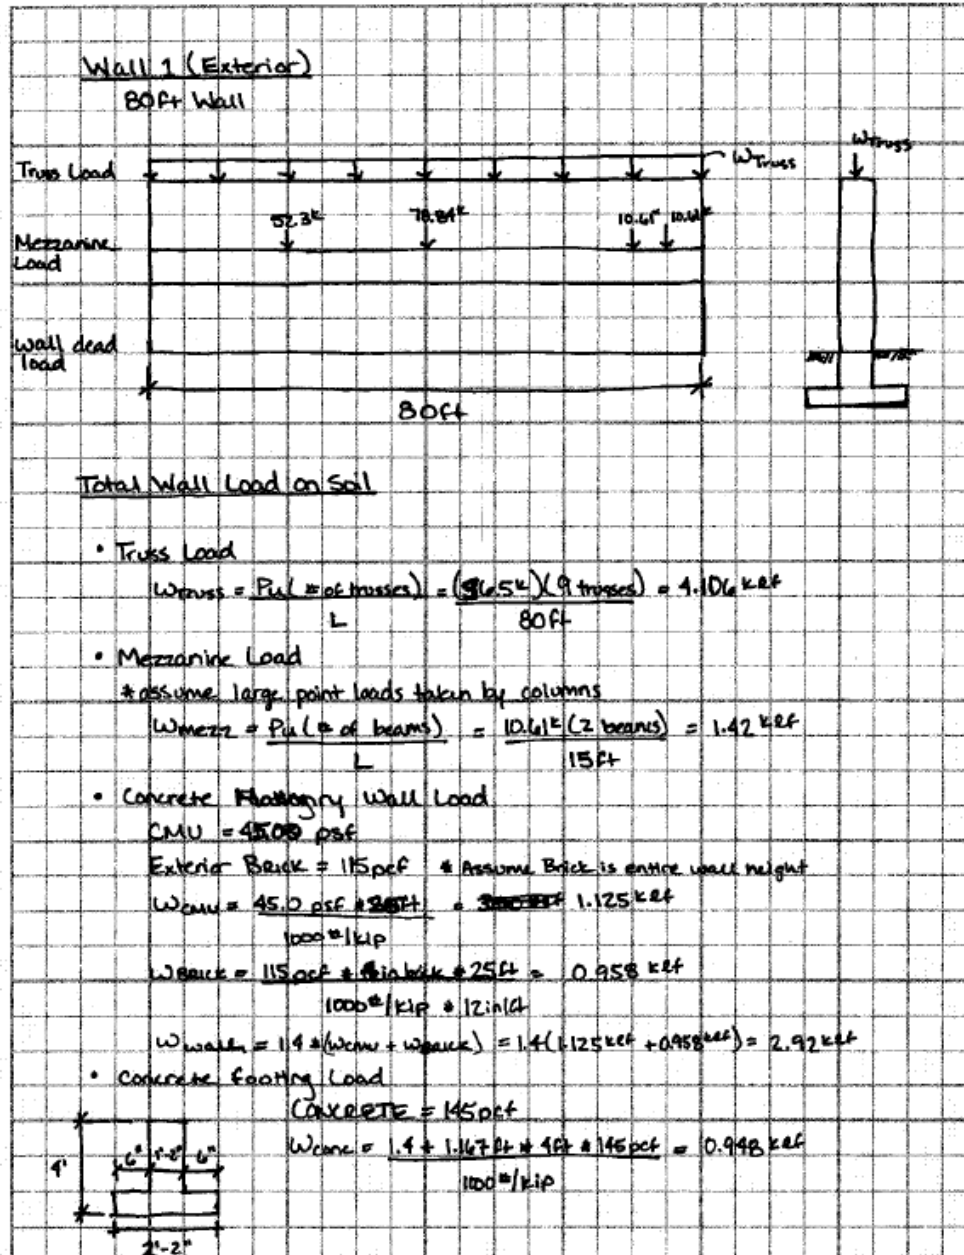 Wall 1 (Exterior)
80ft Wall
Truss Load
WTruss
WTruss
52.3k 78.84k 10.61k 10.61k
Mezzanine Load
wall dead load
80ft
Total Wall Load on Soil
• Truss Load
Wtruss = Pu(# of trusses) / L = (36.5k)(9 trusses) / 80ft = 4.106 klf
• Mezzanine Load
*assume large point loads taken by columns
Wmezz = Pu(# of beams) / L = 10.61k(2 beams) / 15ft = 1.42 klf
• Concrete Wall Load
CMU = psf
Exterior Brick = 115pcf * Assume Brick is entire wall height
Wcmu = 45.0 psf * / 1000#/kip = 1.125 klf
WBrick = 115pcf * * 25ft / 1000#/kip * 12in/ft = 0.958 klf
Wwall = 1.4*(Wcmu + WBrick) = 1.4(1.125klf + 0.958klf) = 2.92klf
• Concrete footing Load
CONCRETE = 145pcf
Wconc = 1.4 * 1.167ft * 4ft * 145pcf / 1000#/kip = 0.948 klf
4' 6" 1'-2" 6"
2'-2"